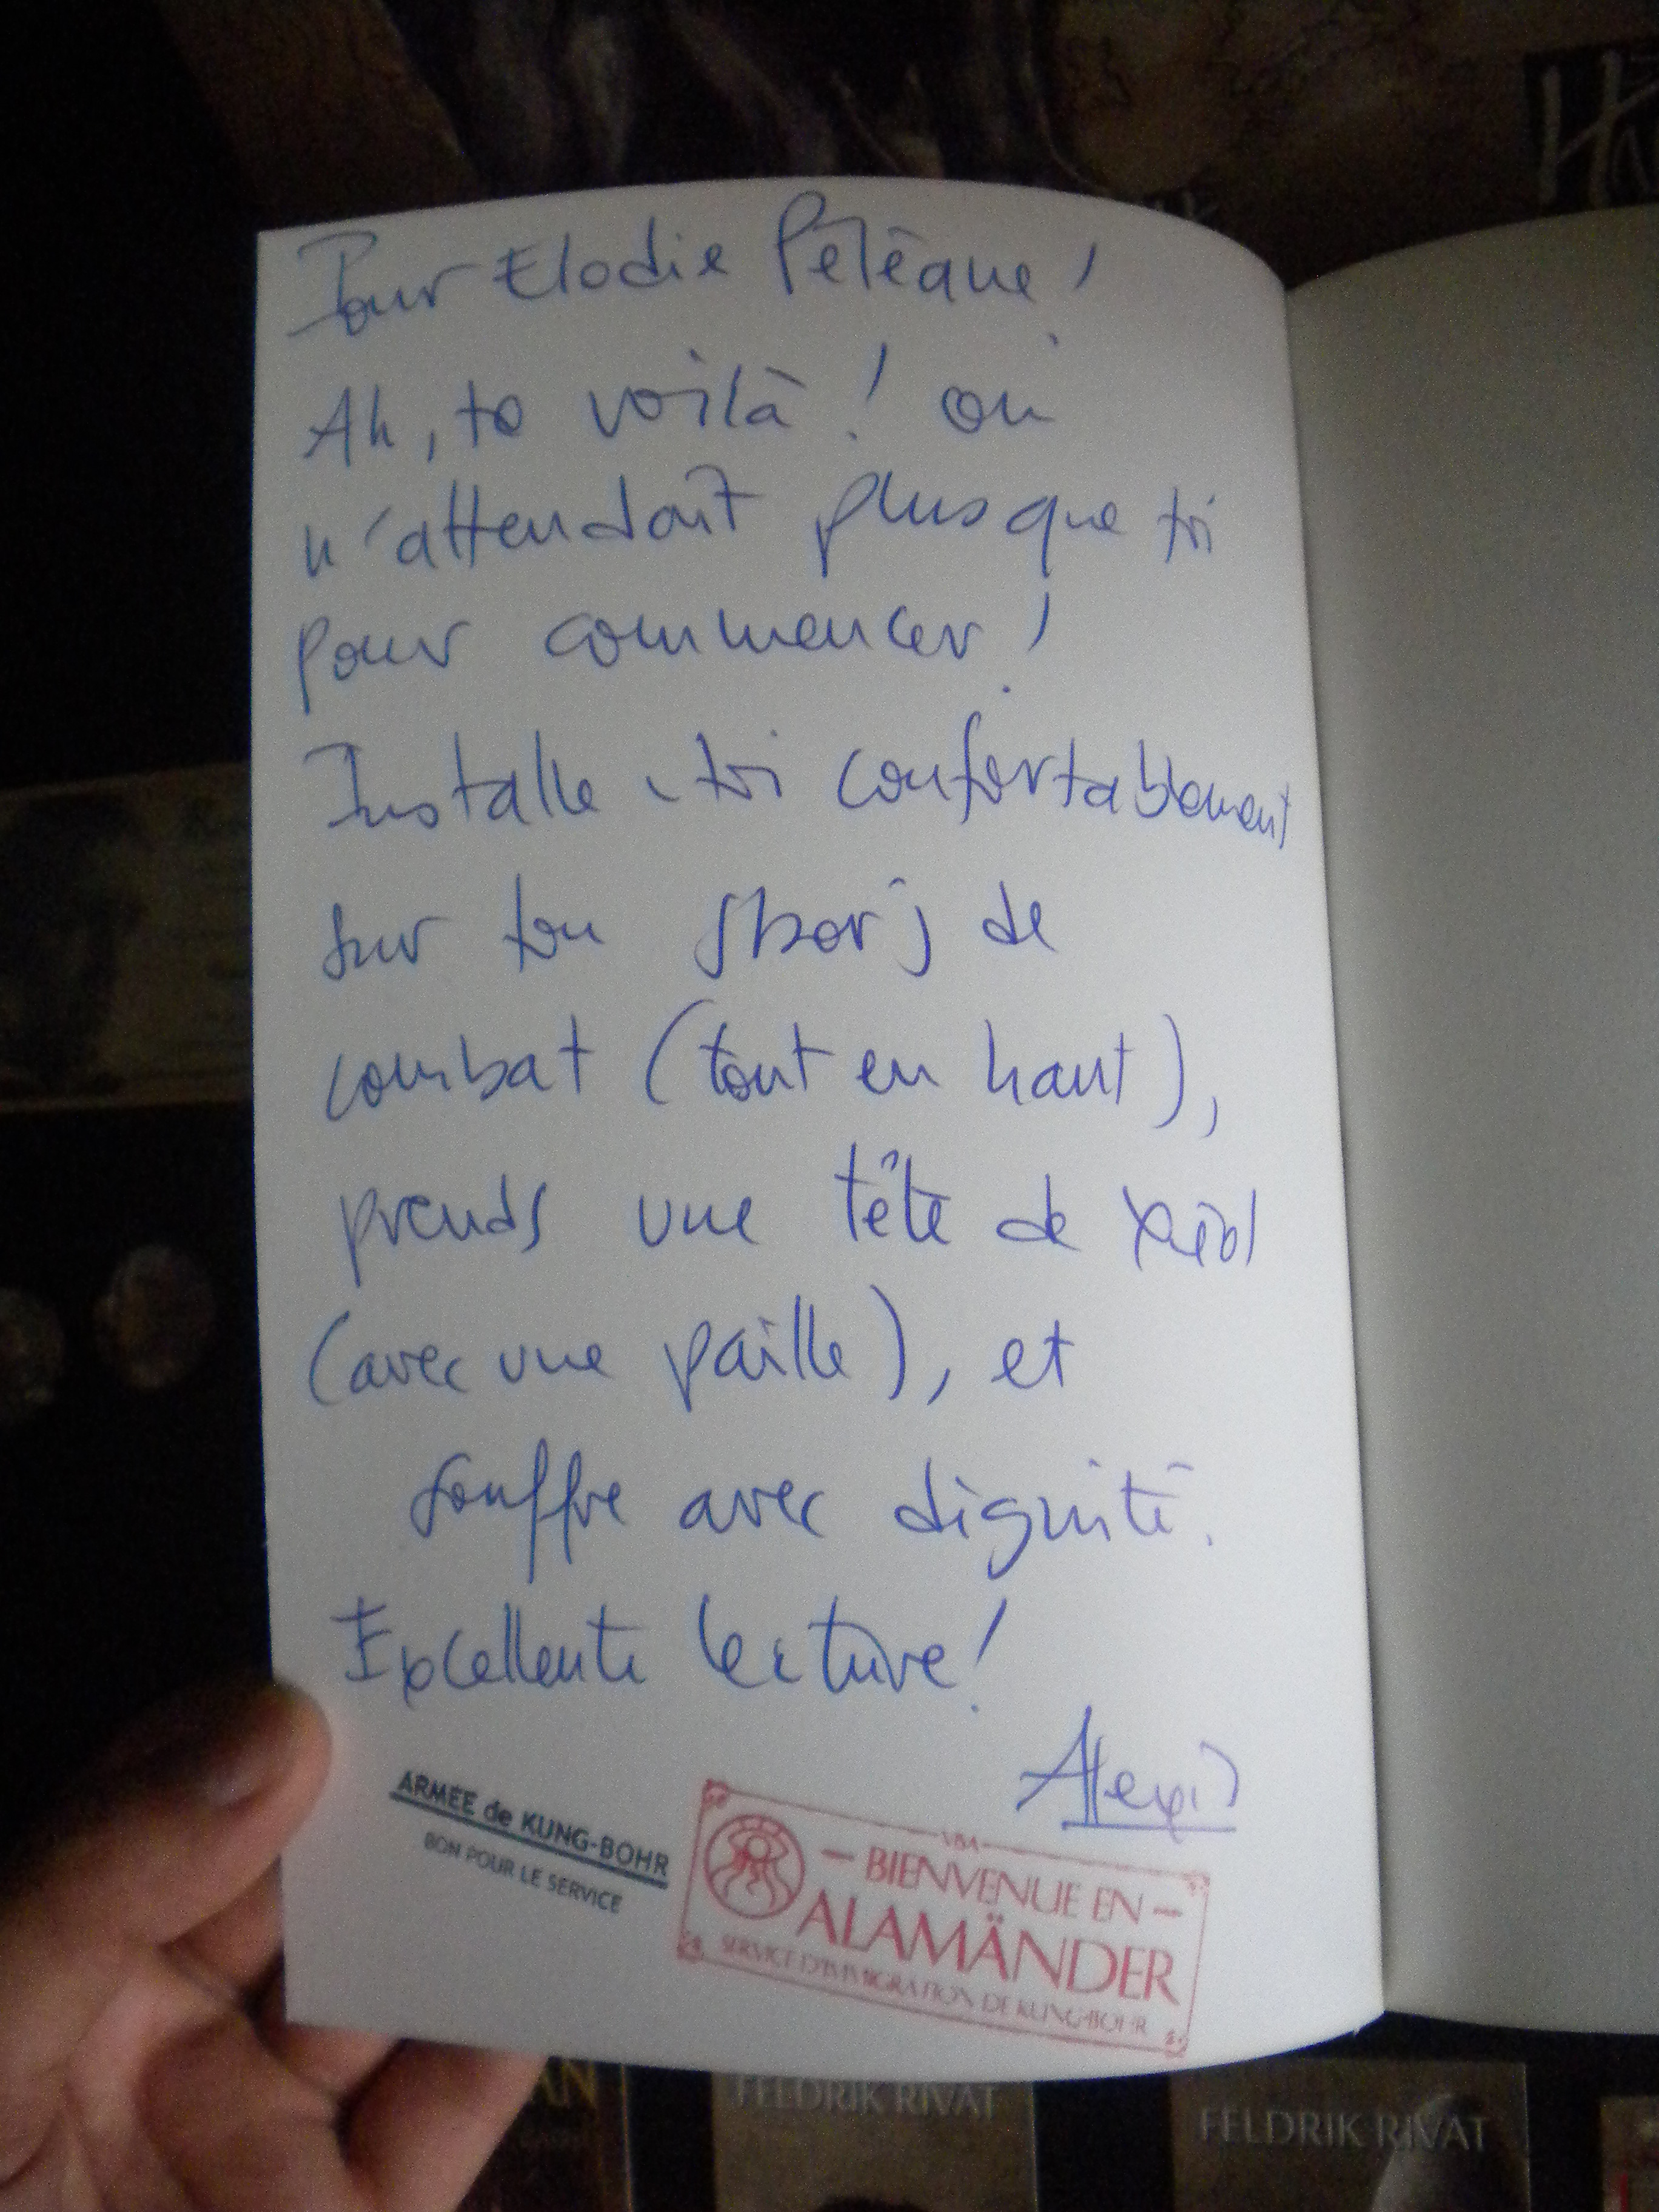 Pour Elodie Péléaue!
Ah, te voilà! on
n'attendait plus que toi
pour commencer!
Installe-toi confortablement
sur ton de
combat (tout en haut),
prends une tête de
(avec une paille), et
souffre avec dignité.
Excellente lecture!
Alexis
ARMEE de KUNG-BOHR
BON POUR LE SERVICE
VISA
- BIENVENUE EN -
ALAMÄNDER
SERVICE D'IMMIGRATION DE KUNG-BOHR
FELDRIK RIVAT
FELDRIK RIVAT